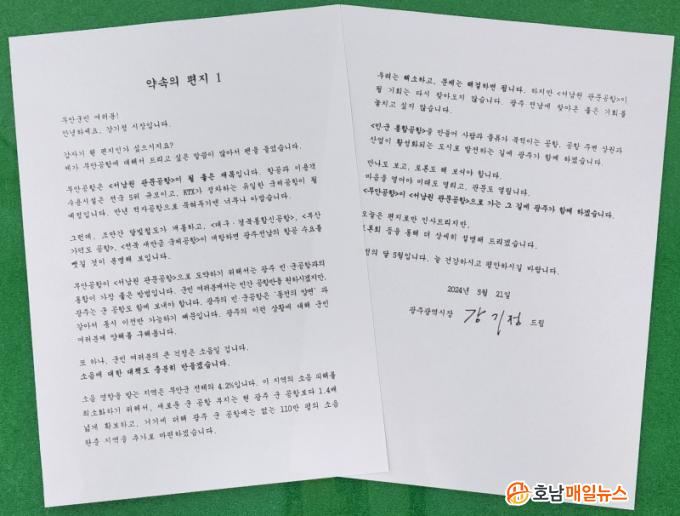 약속의 편지 1
무안군민 여러분!
안녕하세요, 강기정 시장입니다.
갑자기 웬 편지인가 싶으시지요?
제가 무안공항에 대해서 드리고 싶은 말씀이 많아서 펜을 들었습니다.
무안공항은 <서남권 관문공항>이 될 좋은 재목입니다. 활공과 이용객
수용시설은 전국 5위 규모이고, KTX가 정차하는 유일한 국제공항이 될
예정입니다. 만년 적자공항으로 묵혀두기엔 너무나 아깝습니다.
그런데, 조만간 달빛철도가 개통하고, <대구·경북통합신공항>, <부산
가덕도 공항>, <전북 새만금 국제공항>이 개항하면 광주전남의 항공 수요를
뺏길 것이 분명해 보입니다.
무안공항이 <서남권 관문공항>으로 도약하기 위해서는 광주 민·군공항과의
통합이 가장 좋은 방법입니다. 군민 여러분께서는 민간 공항만을 원하시겠지만,
광주는 군 공항도 함께 보내야 합니다. 광주의 민·군공항은 '동전의 양면'과
같아서 동시 이전만 가능하기 때문입니다. 광주의 이런 상황에 대해 군민
여러분께 양해를 구해봅니다.
또 하나, 군민 여러분의 큰 걱정은 소음일 겁니다.
소음에 대한 대책도 충분히 만들겠습니다.
소음 영향을 받는 지역은 무안군 전체의 4.2%입니다. 이 지역의 소음 피해를
최소화하기 위해서, 새로운 군 공항 부지는 현 광주 군 공항보다 1.4배
넓게 확보하고, 거기에 더해 광주 군 공항에는 없는 110만 평의 소음
완충 지역을 추가로 마련하겠습니다.
우려는 해소하고, 문제는 해결하면 됩니다. 하지만 <서남권 관문공항>이
될 기회는 다시 찾아오지 않습니다. 광주·전남에 찾아온 좋은 기회를
놓치고 싶지 않습니다.
<민·군 통합공항>을 만들어 사람과 물류가 북적이는 공항, 공항 주변 상권과
산업이 활성화되는 도시로 발전하는 길에 광주가 함께 하겠습니다.
만나도 보고, 토론도 해 보아야 합니다.
마음을 열어야 미래도 열리고, 관문도 열립니다.
<무안공항>이 <서남권 관문공항>으로 가는 그 길에 광주가 함께 하겠습니다.
오늘은 편지로만 인사드리지만,
토론회 등을 통해 더 상세히 설명해 드리겠습니다.
정의 달 5월입니다. 늘 건강하시고 평안하시길 바랍니다.
2024년 5월 21일
광주광역시장 강기정 드림
호남매일뉴스